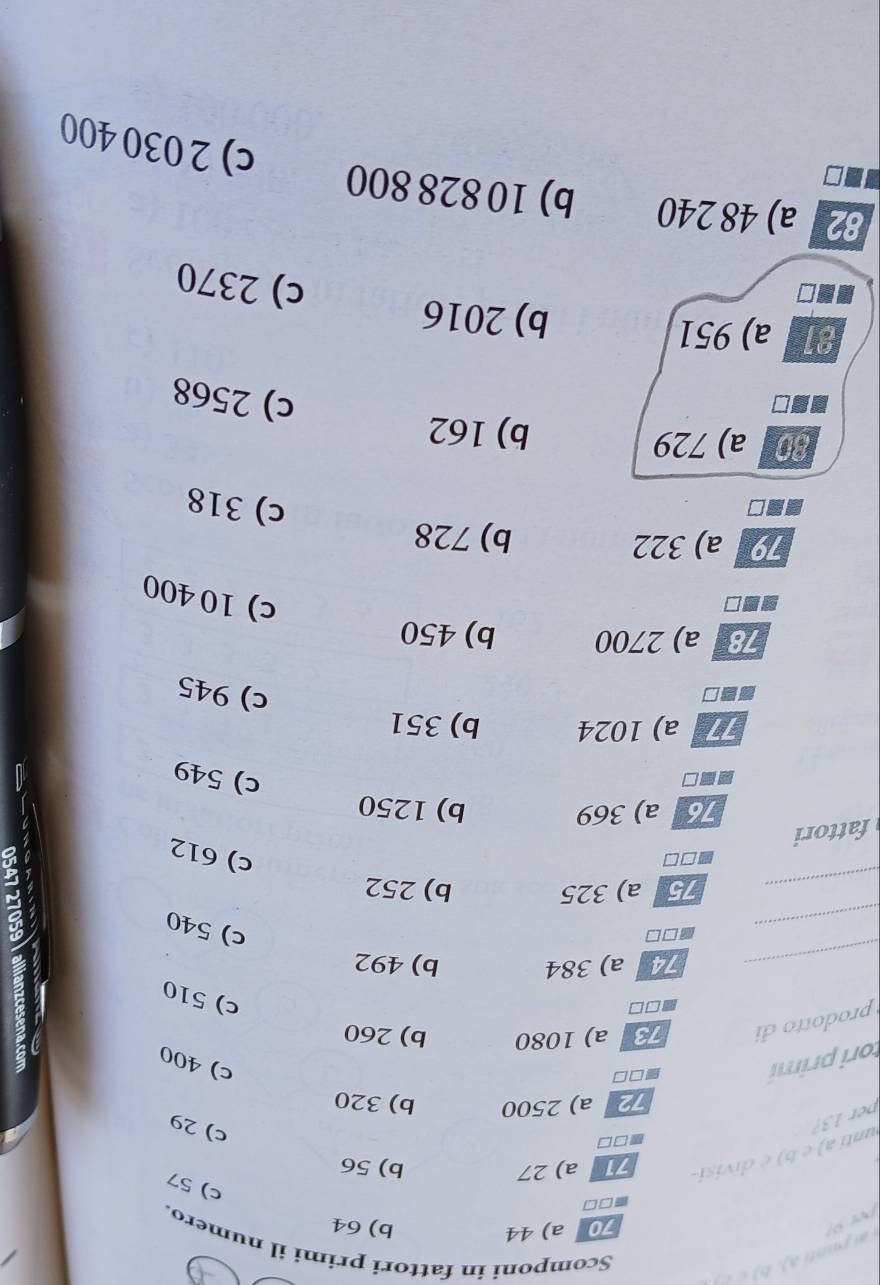 Scomponi in fattori primi il numero.
70 a) 44 b) 64 c) 57
71 a) 27 b) 56 c) 29
72 a) 2500 b) 320 c) 400
73 a) 1080 b) 260 c) 510
74 a) 384 b) 492 c) 540
75 a) 325 b) 252 c) 612
76 a) 369 b) 1250 c) 549
77 a) 1024 b) 351 c) 945
78 a) 2700 b) 450 c) 10 400
79 a) 322 b) 728 c) 318
80 a) 729 b) 162 c) 2568
81 a) 951 b) 2016 c) 2370
82 a) 48 240 b) 10 828 800 c) 2 030 400
punti a) e b) è divisi-
per 13?
tori primi
prodotto di
fattori
0547 27059 / allianzcesena.com